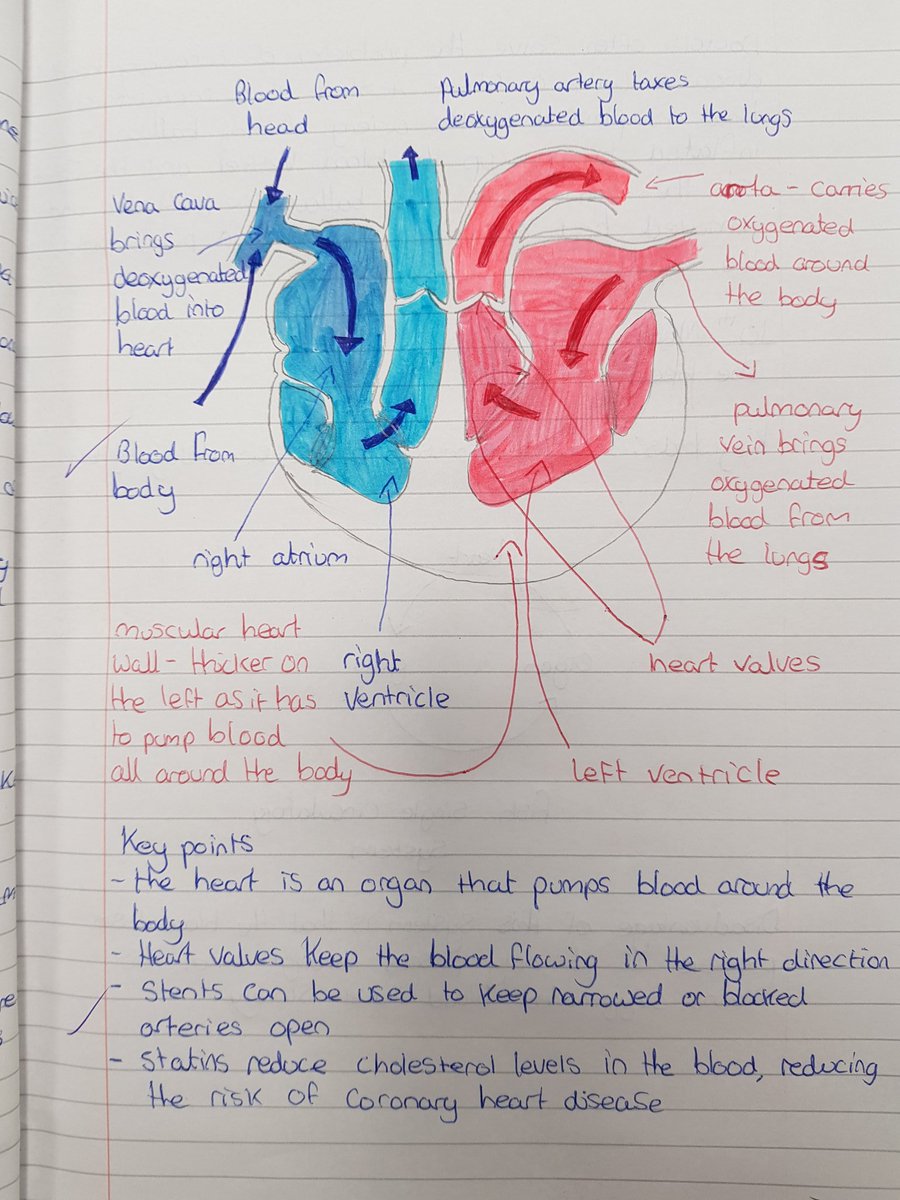 Blood from
head
Pulmonary artery taxes
deoxygenated blood to the lungs
Vena Cava
brings
deoxygenated
blood into
heart
aorta - carries
oxygenated
blood around
the body
Blood from
body
pulmonary
vein brings
oxygenated
blood from
the lungs
right atrium
muscular heart
wall - thicker on
the left as it has
to pump blood
all around the body
right
ventricle
heart valves
left ventricle
Key points
- the heart is an organ that pumps blood around the
body
- Heart valves keep the blood flowing in the right direction
- Stents can be used to keep narrowed or blocked
arteries open
- Statins reduce cholesterol levels in the blood, reducing
the risk of coronary heart disease